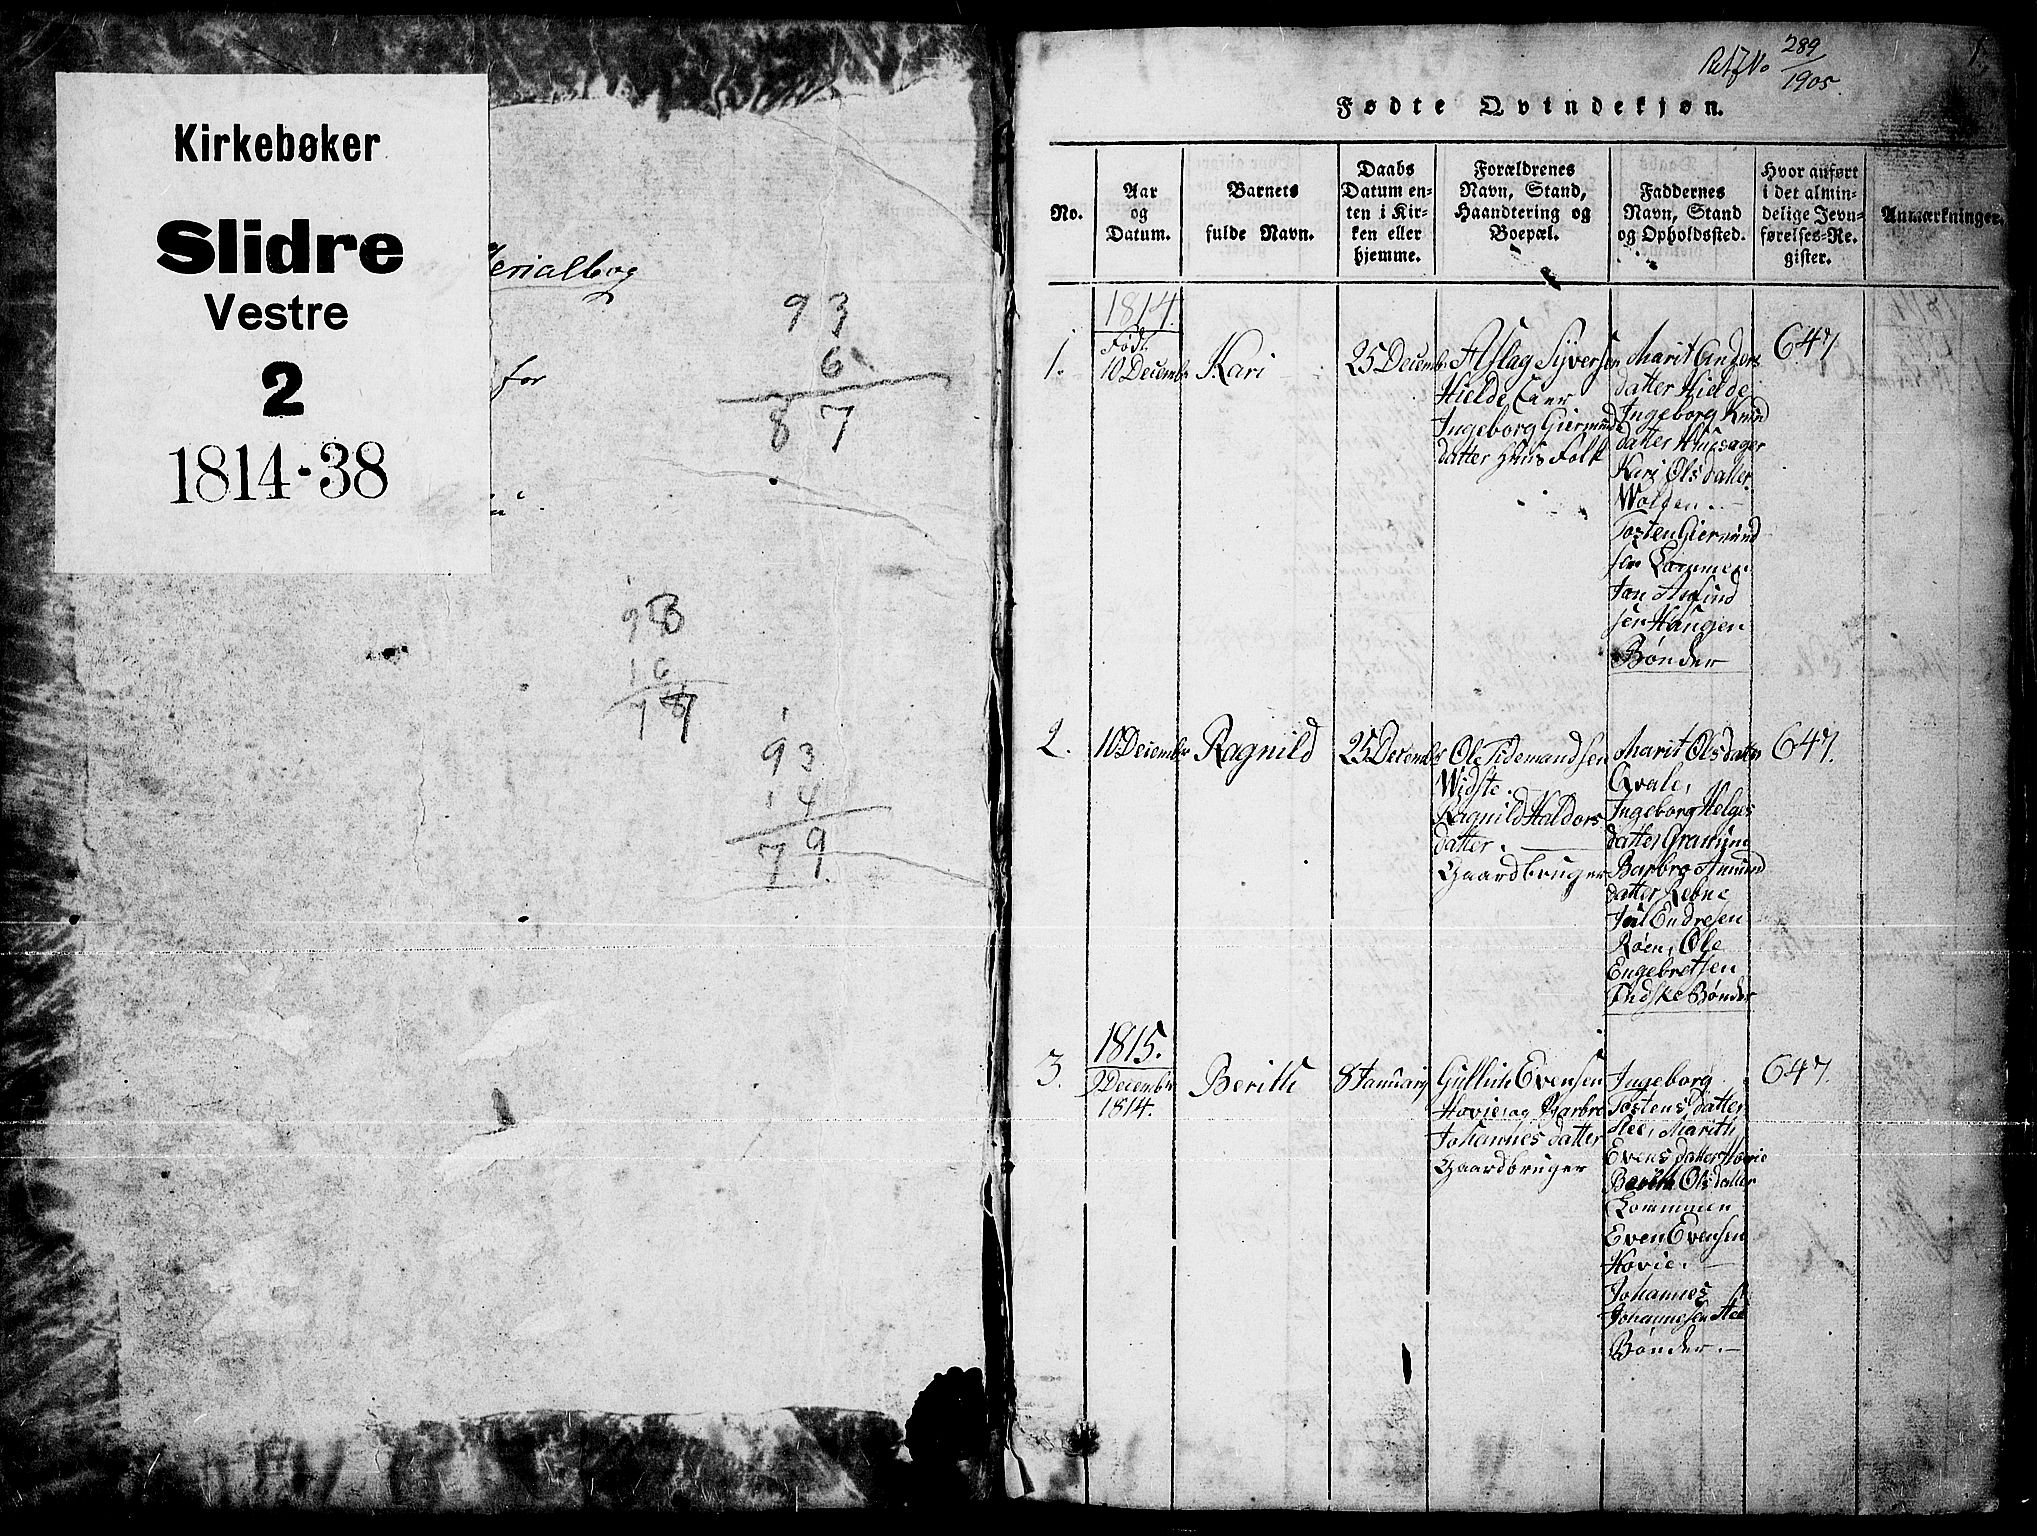 Kirkebøker
Slidre
Vestre
2
1814-38
for
93
6
87
93
16
93
14
79
289
1905.
1.
Fødte Qvindekjøn.
No.
Aar
og
Datum.
Barnets
fulde Navn.
Daabs
Datum en-
ten i Kir-
ken eller
hjemme.
Forældrenes
Navn, Stand,
Haandtering og
Boepæl.
Faddernes
Navn, Stand
og Opholdssted.
Hvor anført
i det almin-
delige Jevn-
førelses-Re-
gister.
Anmærkninger.
1814.
Født
1.
10 Decembr
Kari
25 Decembr
Aslag Syversen
Hielde
Ingeborg Giermund
datter Huus Folk
Marit Anders
datter Hielde
Ingeborg Knud
datter
Kari Olsdatter
Wolden.
Tosten Giermund
sen Lommen
Haugen
Bønder
647
2.
10 Decembr
Ragnild
25 Decembr
Ole Tidemandsen
Widste.
Ragnild Haldors
datter.
Gaardbruger
Marit Olsdatter
Qvale,
Ingeborg Helges
datter
Barbro Amund
datter Rebne
Juul Endresen
Røen, Ole
Engebretsen
Bønder
647.
1815.
3.
Decembr
1814.
Berith
8 Januarÿ
Gullich Evensen
Hovie og Barbro
Johannes datter
Gaardbruger
Ingeborg
Tostens datter
Hee, Marith
Evens datter Hovie
Berith Olsdatter
Lommen
Even Evensen
Hovie.
Johannes
Johannesen Hee
Bønder.
647.